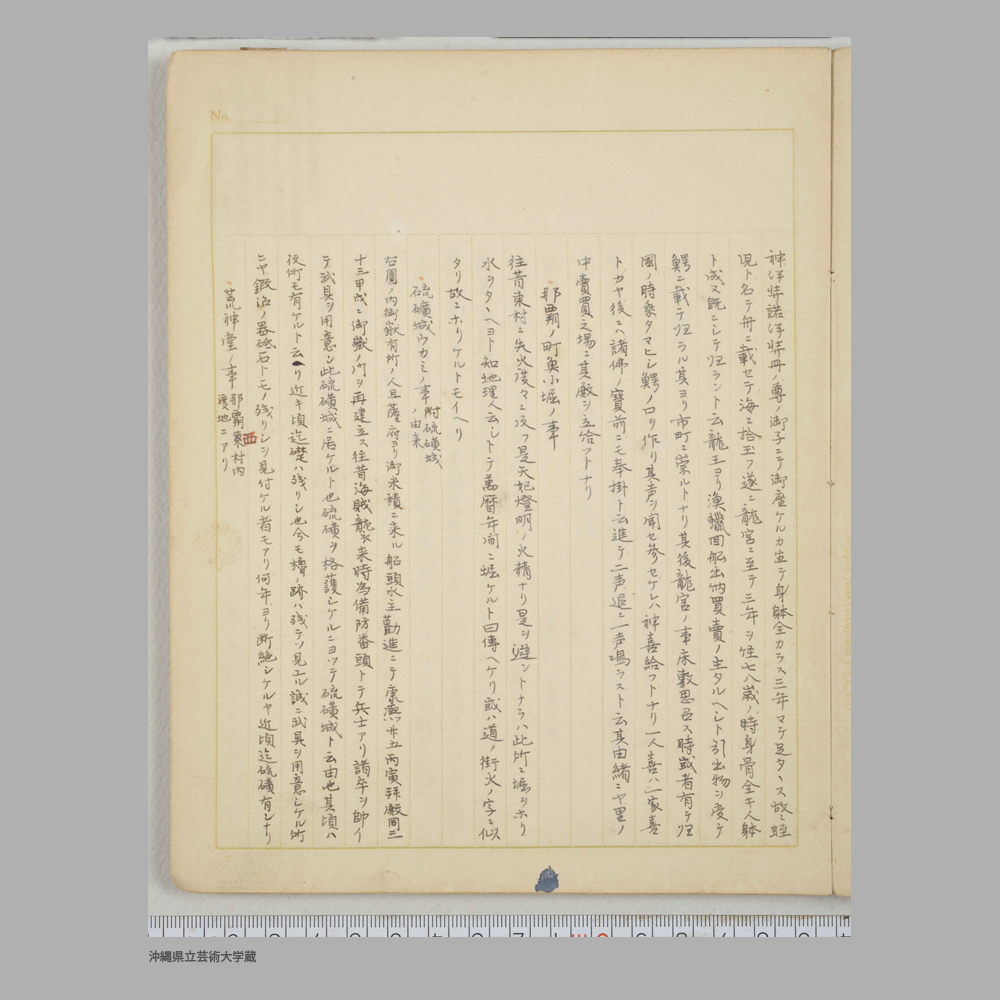 No.
神洋弉諾洋弉冊ノ尊ノ御子ニテ御座ケルカ生テ身躰全カラス三年マテ足タヽス故ニ蛭
児ト名テ舟ニ載セテ海ニ捨玉フ遂ニ龍宮ニ至テ三年ヲ経七八歳ノ時身骨全キ人躰
ト成又既ニシテ归ラント云龍王ヨリ漁獵回舩出納買賣ノ主タルヘシト引出物ヲ受テ
鰐ニ載テ归ラル其ヨリ市町ニ崇ルトナリ其後龍宮ノ事床敷思召ス時或者有テ归
國ノ時乗タマヒシ鰐ノ口ヲ作リ其声ヲ聞セ参セケレハ神喜給フトナリ一人喜ハ一家喜
トカヤ後ニハ諸佛ノ寶前ニモ奉掛ト云進テ二声退ニ一声鳴ラスト云其由緒ニヤ里ノ
中賣買之場ニ其殿ヲ立給フトナリ
那覇ノ町奥小堀ノ事
往昔東村ニ失火度々ニ及フ是天妃燈明ノ火精ナリ是ヲ避ントナラハ此所ニ堀ヲホリ
水ヲタヽヘヨト知地理人云シトテ萬暦年間ニ堀ケルト曰傳ヘケリ或ハ道ノ街火ノ字ニ似
タリ故ニホリケルトモイヘリ
硫礦城ウカミノ事 附硫礦城ノ由来
右圍ノ内御嶽有所ノ人且薩府ヨリ御米積ニ来ル船頭水主勸進ニテ康熙廿五丙寅拜殿同三
十三甲戌ニ御嶽ノ所ヲ再建立ス往昔海賊襲来時為備防番頭トテ兵士アリ諸卒ヲ帥イ
テ武具ヲ用意シ此硫礦城ニ居ケルト也硫礦ヲ格護シケルニヨツテ硫礦城ト云由也其頃ハ
役所モ有ケルト云リ近キ頃迄礎ハ残リシ也今モ櫓ノ跡ハ残テソ見エル誠ニ武具ヲ用意シケル所
ニヤ鍛冶ノ器砥石トモノ残リシヲ見付ケル者モアリ何年ヨリ断絶シケルヤ近頃迄硫礦有シナリ
荒神堂ノ事 那覇東村内渡地ニアリ
西
沖縄県立芸術大学蔵